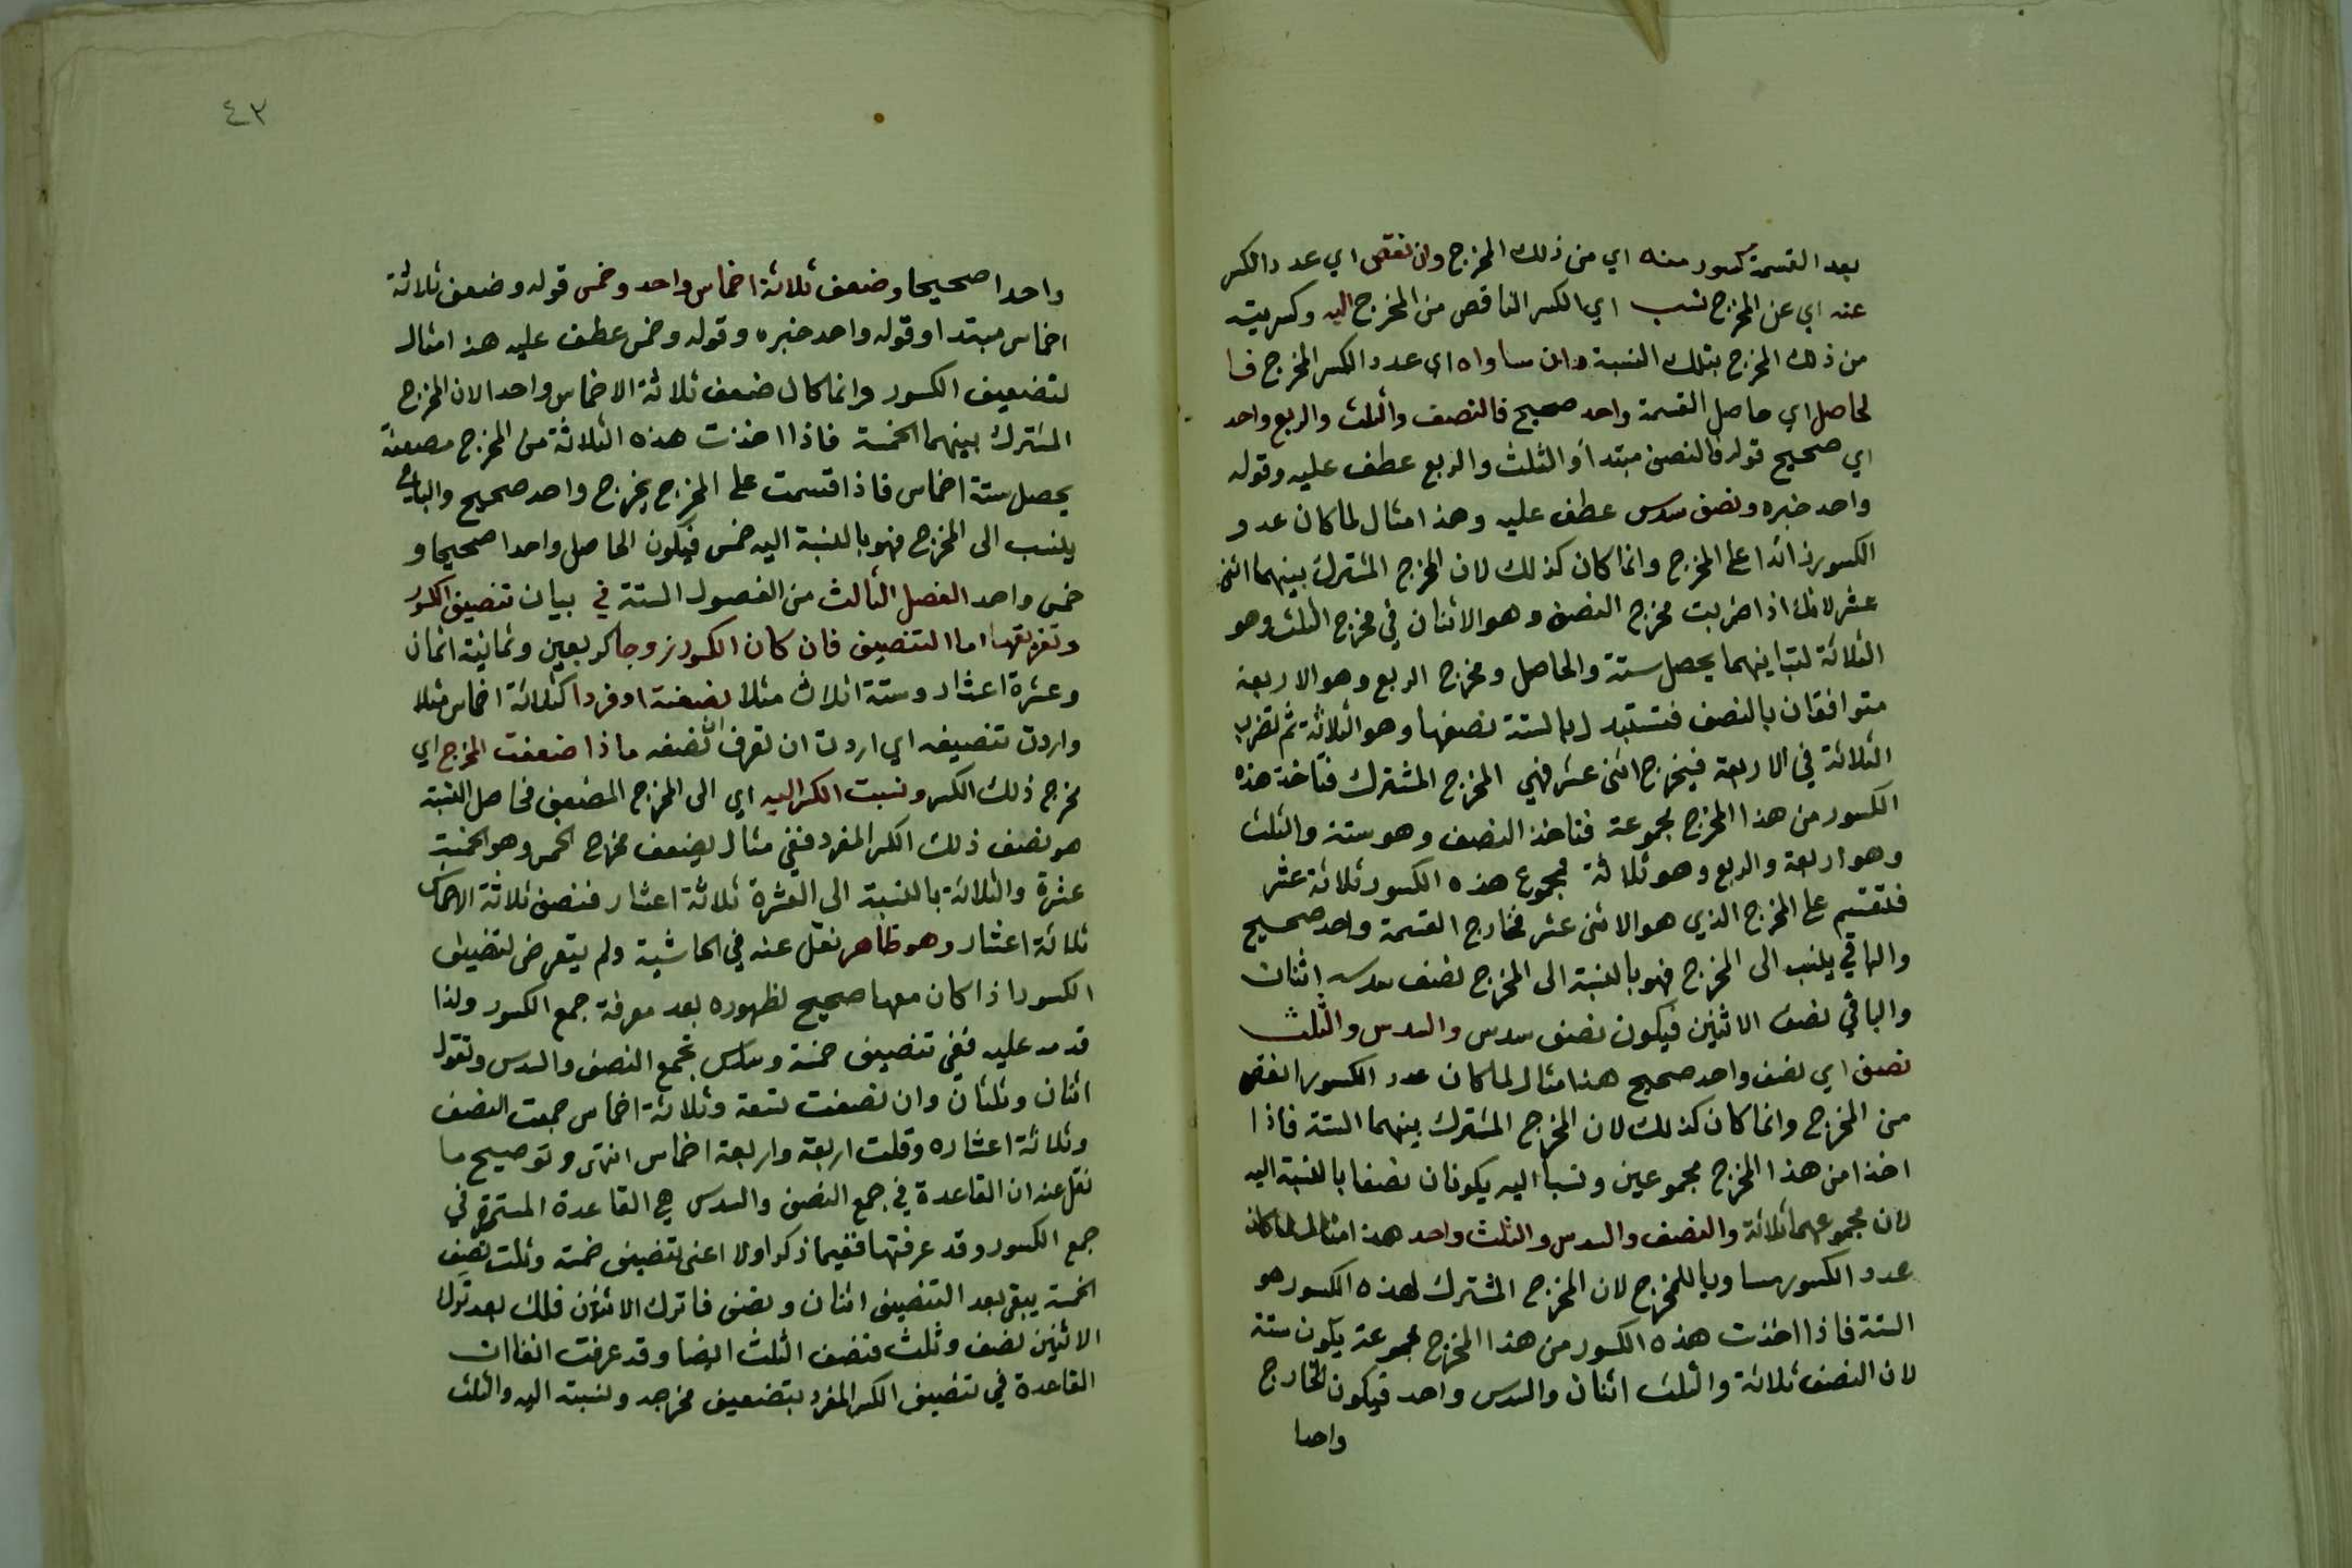 بعد القسمة كسور منه اي من ذلك المخرج وان نقص اي عدد الكسر
عنه اي عن المخرج نسب اي الكسر الناقص من المخرج اليه وكسريته
من ذلك المخرج بتلك النسبة وان ساواه اي عدد الكسر المخرج فا
لحاصل اي حاصل القسمة واحد صحيح فالنصف والثلث والربع واحد
اي صحيح قوله فالنصف مبتدأ والثلث والربع عطف عليه وقوله
واحد خبره ونصف سدس عطف عليه وهذا مثال لما كان عدد
الكسور زائدا على المخرج وانما كان كذلك لان المخرج المشترك بينهما اثنى
عشر لانك اذا ضربت مخرج النصف وهو الاثنان في مخرج الثلث وهو
الثلاثة لتباينهما يحصل ستة والحاصل ومخرج الربع وهو الاربعة
متوافقان بالنصف فتستبدل بالستة نصفها وهو الثلاثة ثم تضرب
الثلاثة في الاربعة فيخرج اثنى عشر فهي المخرج المشترك فتاخذ هذه
الكسور من هذا المخرج مجموعة فتاخذ النصف وهو ستة والثلث
وهو اربعة والربع وهو ثلاثة فمجموع هذه الكسور ثلاثة عشر
فتقسم على المخرج الذي هو الاثنى عشر فخارج القسمة واحد صحيح
والباقي ينسب الى المخرج فهو بالنسبة الى المخرج نصف سدسه اثنان
والباقي نصف الاثنين فيكون نصف سدس والسدس والثلث
نصف اي نصف واحد صحيح هذا مثال لما كان عدد الكسور انقص
من المخرج وانما كان كذلك لان المخرج المشترك بينهما الستة فاذا
اخذا من هذا المخرج مجموعين ونسبا اليه يكونان نصفا بالنسبة اليه
لان مجموعهما ثلاثة والنصف والسدس والثلث واحد هذا مثال لما كان
عدد الكسور مساويا للمخرج لان المخرج المشترك لهذه الكسور هو
الستة فاذا اخذت هذه الكسور من هذا المخرج مجموعة يكون ستة
لان النصف ثلاثة والثلث اثنان والسدس واحد فيكون الخارج
واحدا
٤٣
واحدا صحيحا وضعف ثلاثة اخماس واحد وخمس قوله وضعف ثلاثة
اخماس مبتدا وقوله واحد خبره وقوله وخمس عطف عليه هذا مثال
لتضعيف الكسور وانما كان ضعف ثلاثة الاخماس واحدا لان المخرج
المشترك بينهما الخمسة فاذا اخذت هذه الثلاثة من المخرج مضعفة
يحصل ستة اخماس فاذا قسمت على المخرج يخرج واحد صحيح والباقي
ينسب الى المخرج فهو بالنسبة اليه خمس فيكون الحاصل واحدا صحيحا و
خمس واحد الفصل الثالث من الفصول الستة في بيان تنصيف الكسور
وتفريقها اما التنصيف فان كان الكسور زوجا كربعين وثمانية اثمان
وعشرة اعشار وستة اثلاث مثلا نصفته او فردا كثلاثة اخماس مثلا
واردت تنصيفه اي اردت ان تعرف نصفه ماذا ضعفت المخرج اي
مخرج ذلك الكسر ونسبت الكسر اليه اي الى المخرج المضعف فحاصل النسبة
هو نصف ذلك الكسر المفرد ففي مثال يضعف مخرج الخمس وهو الخمسة
عشرة والثلاثة بالنسبة الى العشرة ثلاثة اعشار فنصف ثلاثة الاخماس
ثلاثة اعشار وهو ظاهر نقل عنه في الحاشية ولم يتعرض لتنصيف
الكسور اذا كان معها صحيح لظهوره بعد معرفة جمع الكسور ولذا
قدمه عليه ففي تنصيف خمسة وسدس تجمع النصف والسدس وتقول
اثنان وثلثان وان نصفت تسعة وثلاثة اخماس جمعت النصف
وثلاثة اعشاره وقلت اربعة واربعة اخماس انتهى وتوضيح ما
نقل عنه ان القاعدة في جمع النصف والسدس هي القاعدة المستمرة في
جمع الكسور وقد عرفتها ففيما ذكر اولا اعنى تنصيف خمسة وثلث نصف
الخمسة يبقى بعد التنصيف اثنان ونصف فاترك الاثنين فلك بعد ترك
الاثنين نصف وثلث فنصف الثلث ايضا وقد عرفت انفا ان
القاعدة في تنصيف الكسر المفرد بتضعيف مخرجه ونسبته اليه والثلث